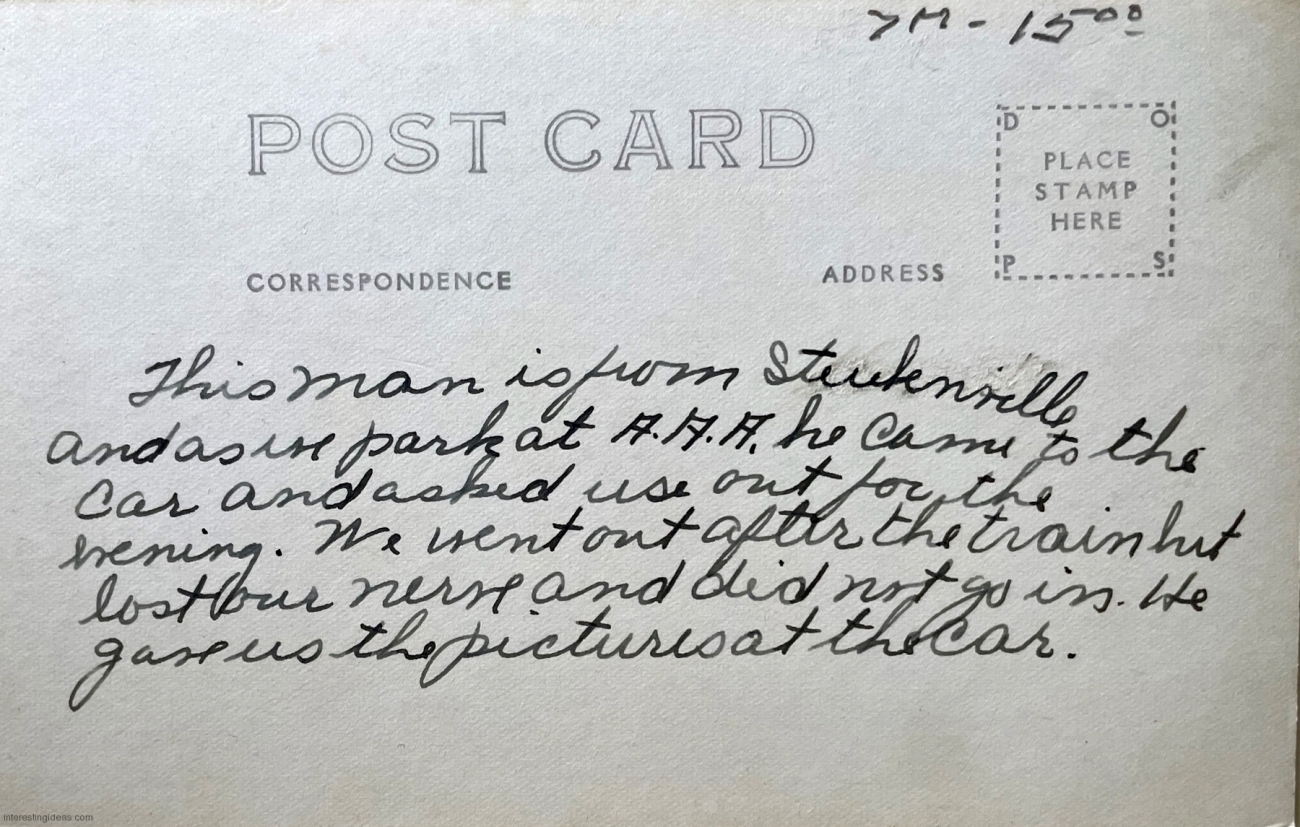 7M - 15⁰⁰
POST CARD
D O
PLACE
STAMP
HERE
P S
CORRESPONDENCE
ADDRESS
This man is from Steubenville
and as we park at A.A.A. he came to the
Car and asked use out for the
evening. We went out after the train but
lost our nerve and did not go in. He
gave us the pictures at the Car.
interestingideas.com